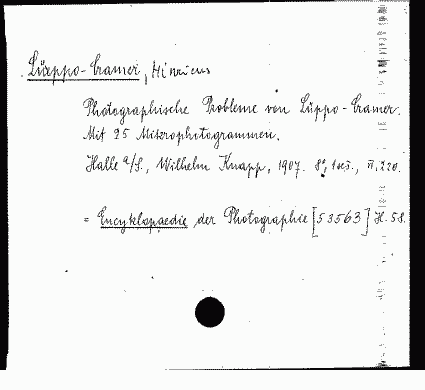 Lüppo-Cramer, Hinricus
Photographische Probleme von Lüppo-Cramer.
Mit 25 Mikrophotogrammen.
Halle a/S., Wilhelm Knapp, 1907. 8,
= Encyklopaedie der Photographie [53563] H. 58.